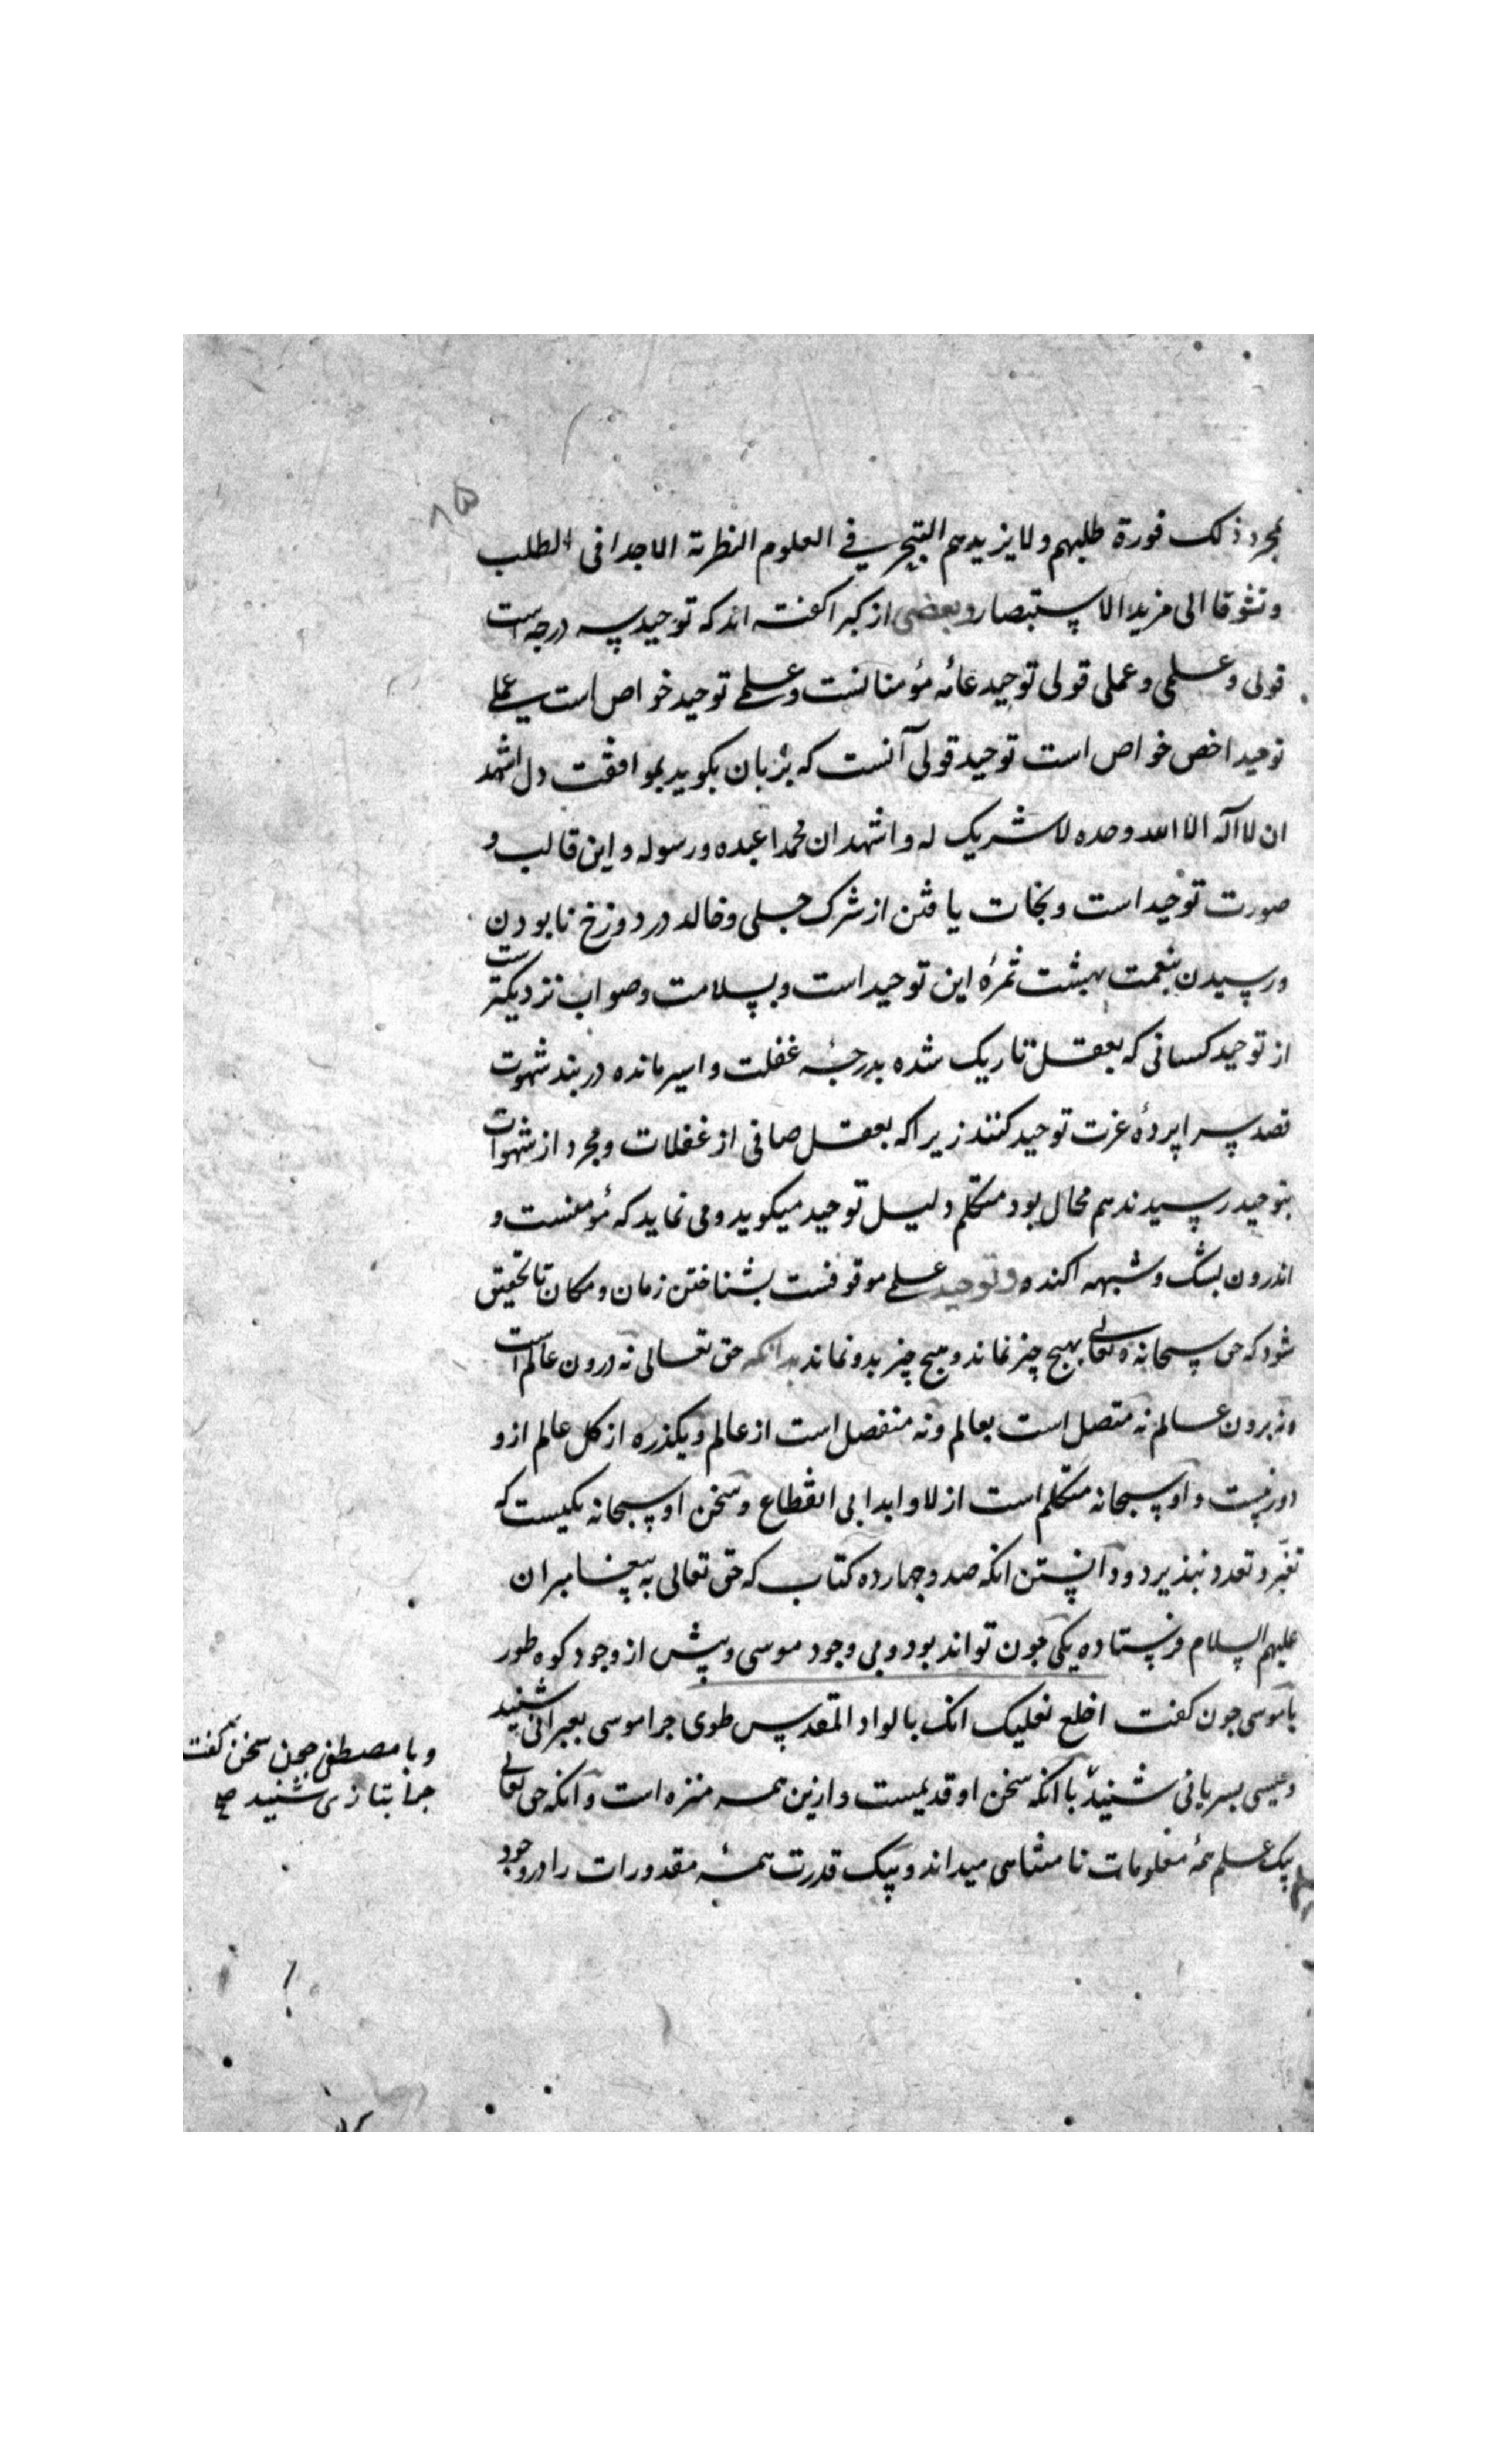 ۸۵
بمجرد ذلک فورة طلبهم ولا یزیدهم التبحر فی العلوم النظریة الا جدا فی الطلب
وتشوقا الی مزید الاستبصار وبعضی از کبرا گفته اند که توحید سه درجه است
قولی و علمی و عملی قولی توحید عامه مؤمنانست و علمی توحید خواص است عملی
توحید اخص خواص است توحید قولی آنست که بزبان بگوید بموافقت دل اشهد
ان لا اله الا الله وحده لا شریک له و اشهد ان محمدا عبده و رسوله و این قالب و
صورت توحید است و نجات یافتن از شرک جلی و خالد در دوزخ نابودن
و رسیدن بنعمت بهشت ثمرهٔ این توحید است و بسلامت و صواب نزدیکترست
از توحید کسانی که بعقل تاریک شده بدرجهٔ غفلت و اسیر مانده در بند شهوت
قصد سراپردهٔ عزت توحید کنند زیرا که بعقل صافی از غفلات و مجرد از شهوات
بتوحید رسیدند هم محال بود متکلم دلیل توحید میکوید و می نماید که مؤمنست و
اندرون بشک و شبهه اکنده و توحید علمی موقوفست بشناختن زمان و مکان تا تحقیق
شود که حق سبحانه و تعالی بهیچ چیز نماند و هیچ چیز بدو نماند بدانکه حق تعالی نه درون عالم است
ونه برون عالم نه متصل است بعالم ونه منفصل است از عالم و یکذره از کل عالم ازو
دور نیست و او سبحانه متکلم است ازلا و ابدا بی انقطاع و سخن او سبحانه یکیست که
تغیر و تعدد نپذیرد و دانستن انکه صد و چهارده کتاب که حق تعالی به پیغامبران
علیهم السلام فرستاده یکی جون تواند بود و بی وجود موسی و پیش از وجود کوه طور
با موسی جون کفت اخلع نعلیک انک بالواد المقدس طوی جرا موسی بعبرانی شنید
و عیسی بسریانی شنید با انکه سخن او قدیمست و ازین همه منزه است و آنکه حق تعالی
بیک علم همهٔ معلومات نامتناهی میداند و بیک قدرت همهٔ مقدورات را در وجود
و با مصطفی جون سخن کفت
جرا بتازی شنید صح